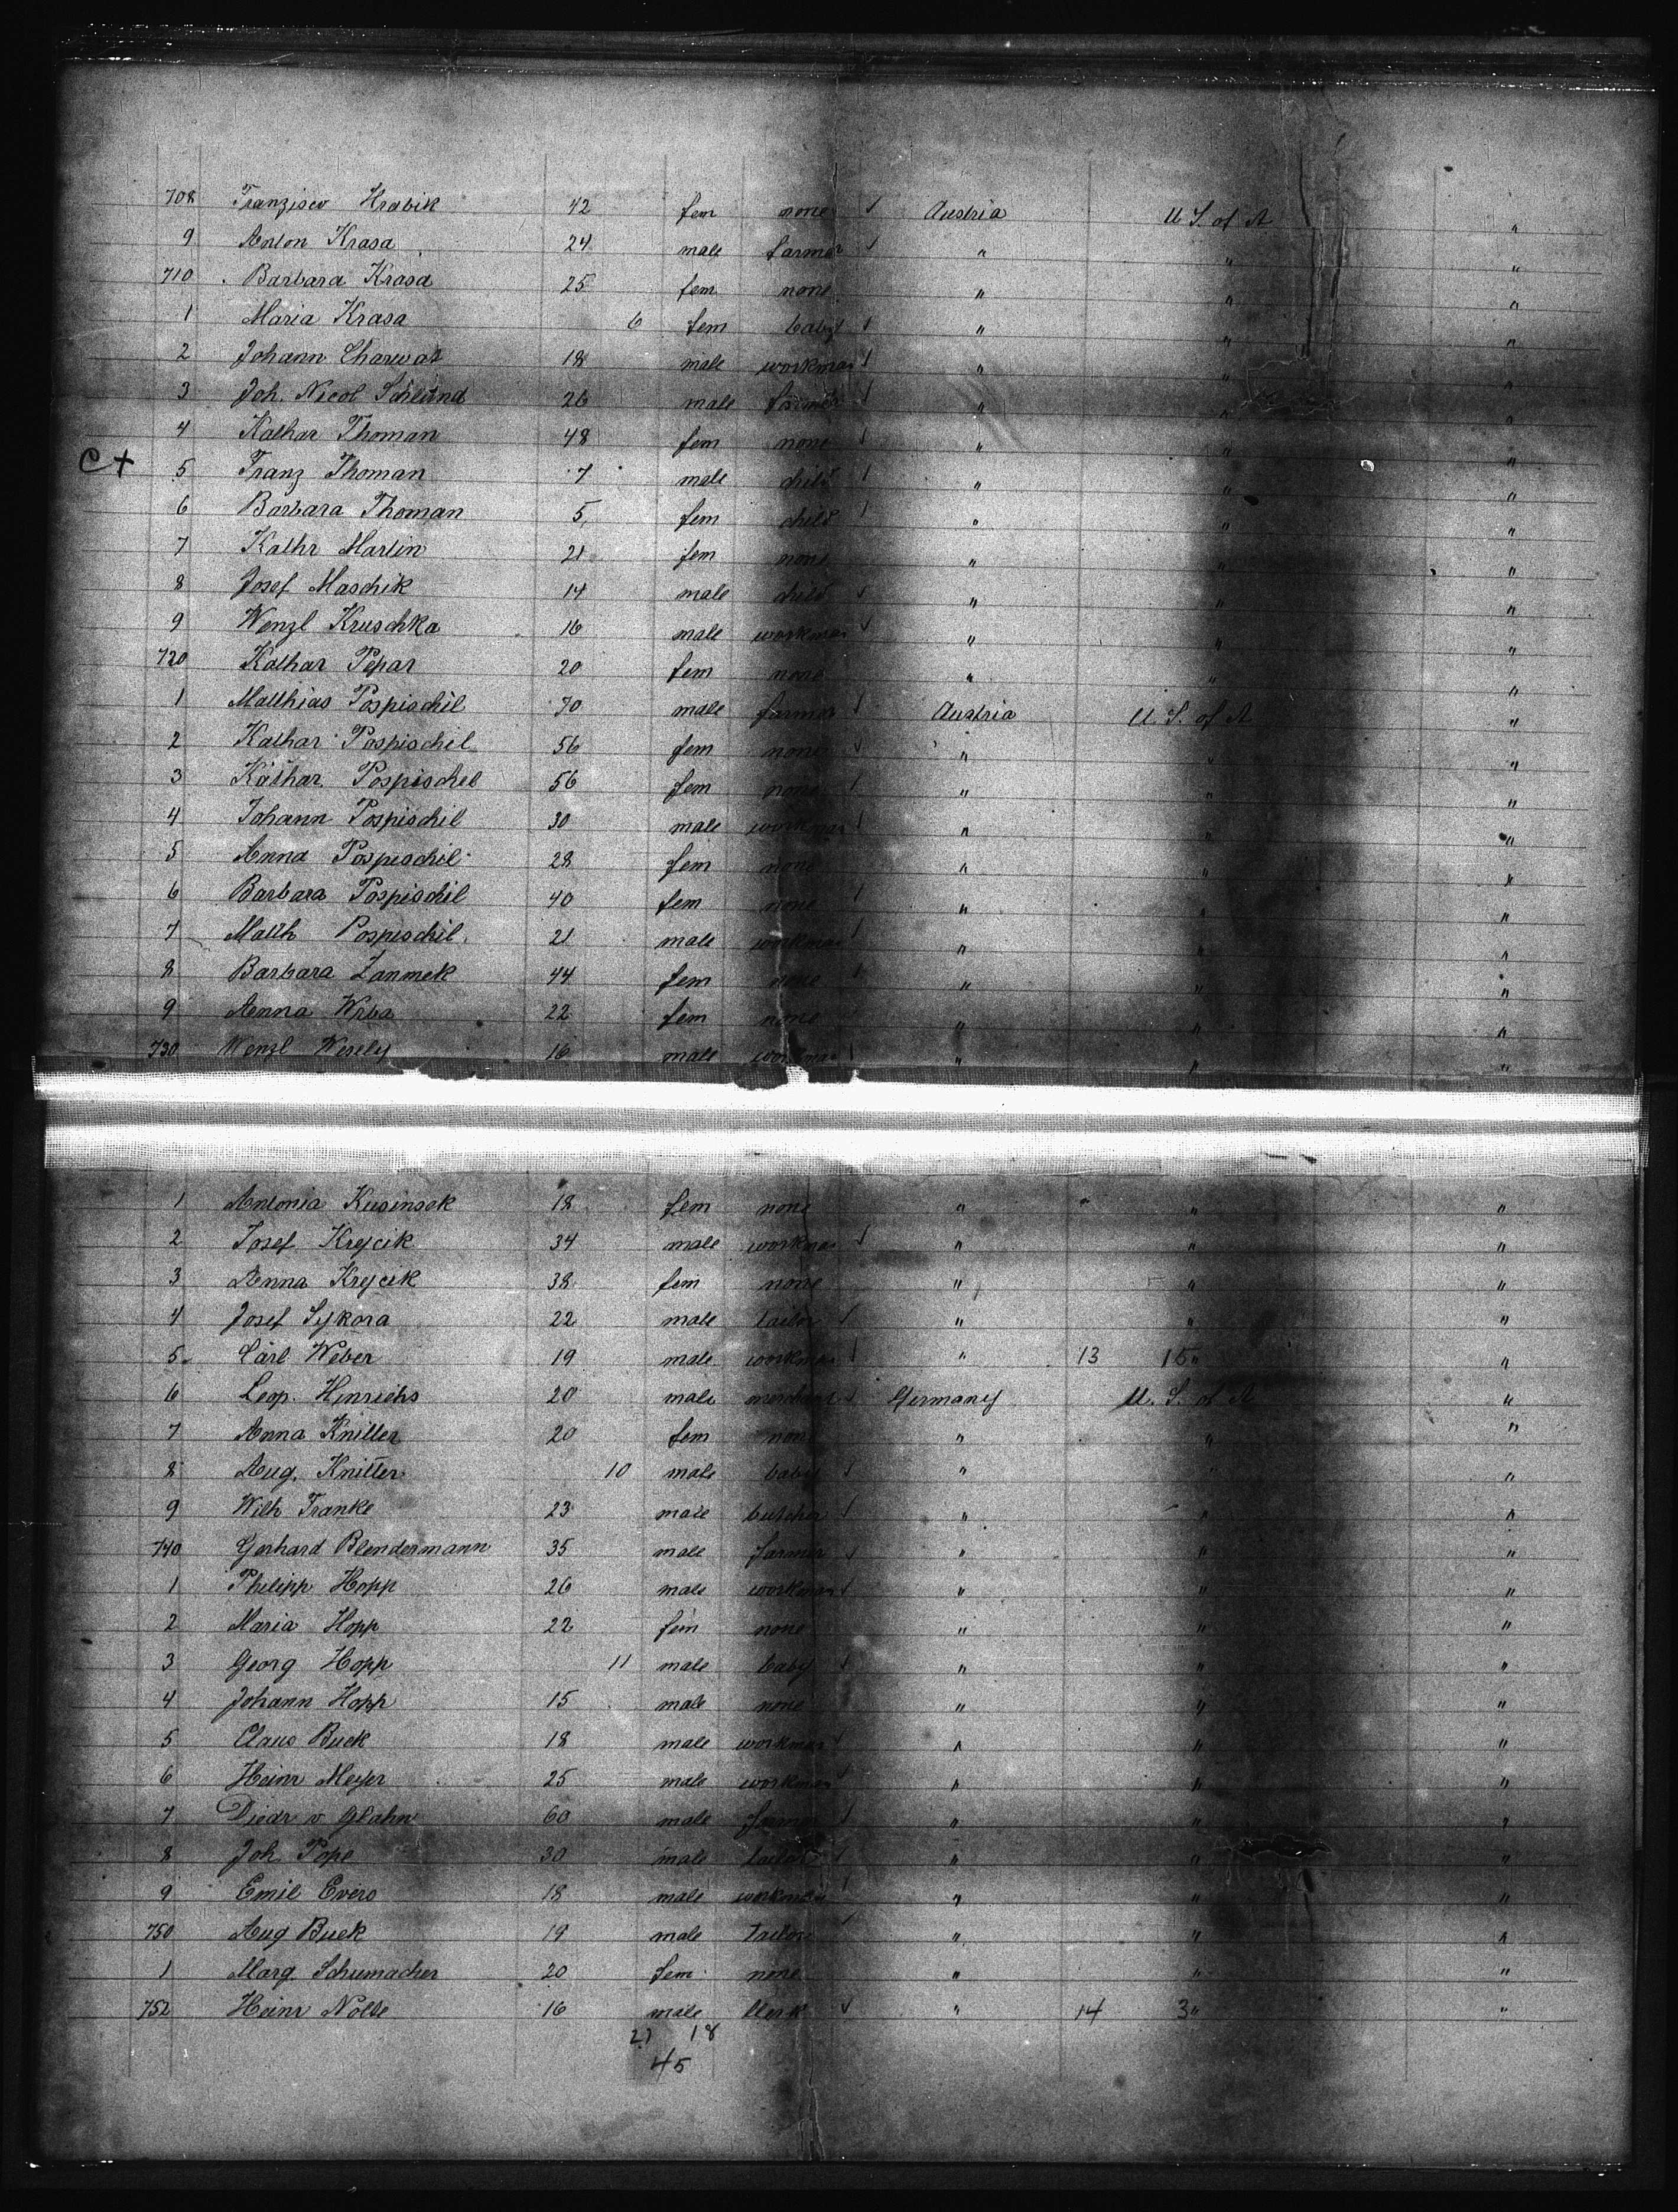 708 Franzisca Hrabik 42 fem none √ Austria U S. of A "
9 Anton Krasa 24 male farmer √ " " "
710 Barbara Krasa 25 fem none " " "
1 Maria Krasa 6 fem baby √ " " "
2 Johann Charwat 18 male workman √ " " "
3 Joh. Nicol 26 male farmer √ " " "
4 Kathar Thoman 48 fem none √ " " "
C+ 5 Franz Thoman 7 male child √ " " "
6 Barbara Thoman 5 fem child √ " " "
7 Kathr Martin 21 fem none " " "
8 Josef Maschik 14 male child √ " " "
9 Wenzl Kruschka 16 male workman √ " " "
720 Kathar Pepar 20 fem none " " "
1 Matthias Pospischil 70 male farmer √ Austria U S. of A "
2 Kathar Pospischil 56 fem none √ " " "
3 Kathar. Pospischel 56 fem none √ " " "
4 Johann Pospischil 30 male workman √ " " "
5 Anna Pospischil 28 fem none " " "
6 Barbara Pospischil 40 fem none √ " " "
7 Matth Pospischil 21 male workman √ " " "
8 Barbara Zanmek 44 fem none √ " " "
9 Anna Wrba 22 fem none " " "
730 Wenzl Wesely 16 male workman √ " " "
1 Antonia Kusinsek 18 fem none " " "
2 Josef Krejcik 34 male workman √ " " "
3 Anna Krejcik 38 fem none " " "
4 Josef Sykora 22 male tailor √ " " "
5 Carl Weber 19 male workman √ " 13 15 " "
6 Leop. Hinrichs 20 male merchant √ Germany U. S. of A "
7 Anna Knitter 20 fem none " " "
8 Aug. Knitter 10 male baby √ " " "
9 Wilh Franke 23 male butcher √ " " "
740 Gerhard Blendermann 35 male farmer √ " " "
1 Philipp Hopp 26 male workman √ " " "
2 Maria Hopp 22 fem none " " "
3 Georg Hopp 11 male baby √ " " "
4 Johann Hopp 15 male none " " "
5 Claus Buck 18 male workman √ " " "
6 Heinr Meyer 25 male workman √ " " "
7 Diedr v Glahn 60 male farmer √ " " "
8 Joh Pope 30 male tailor √ " " "
9 Emil Evers 18 male workman √ " " "
750 Aug Buck 19 male tailor √ " " "
1 Marg. Schumacher 20 fem none " " "
752 Heinr Nolte 16 male Clerk √ " 14 3 " "
27 18
45